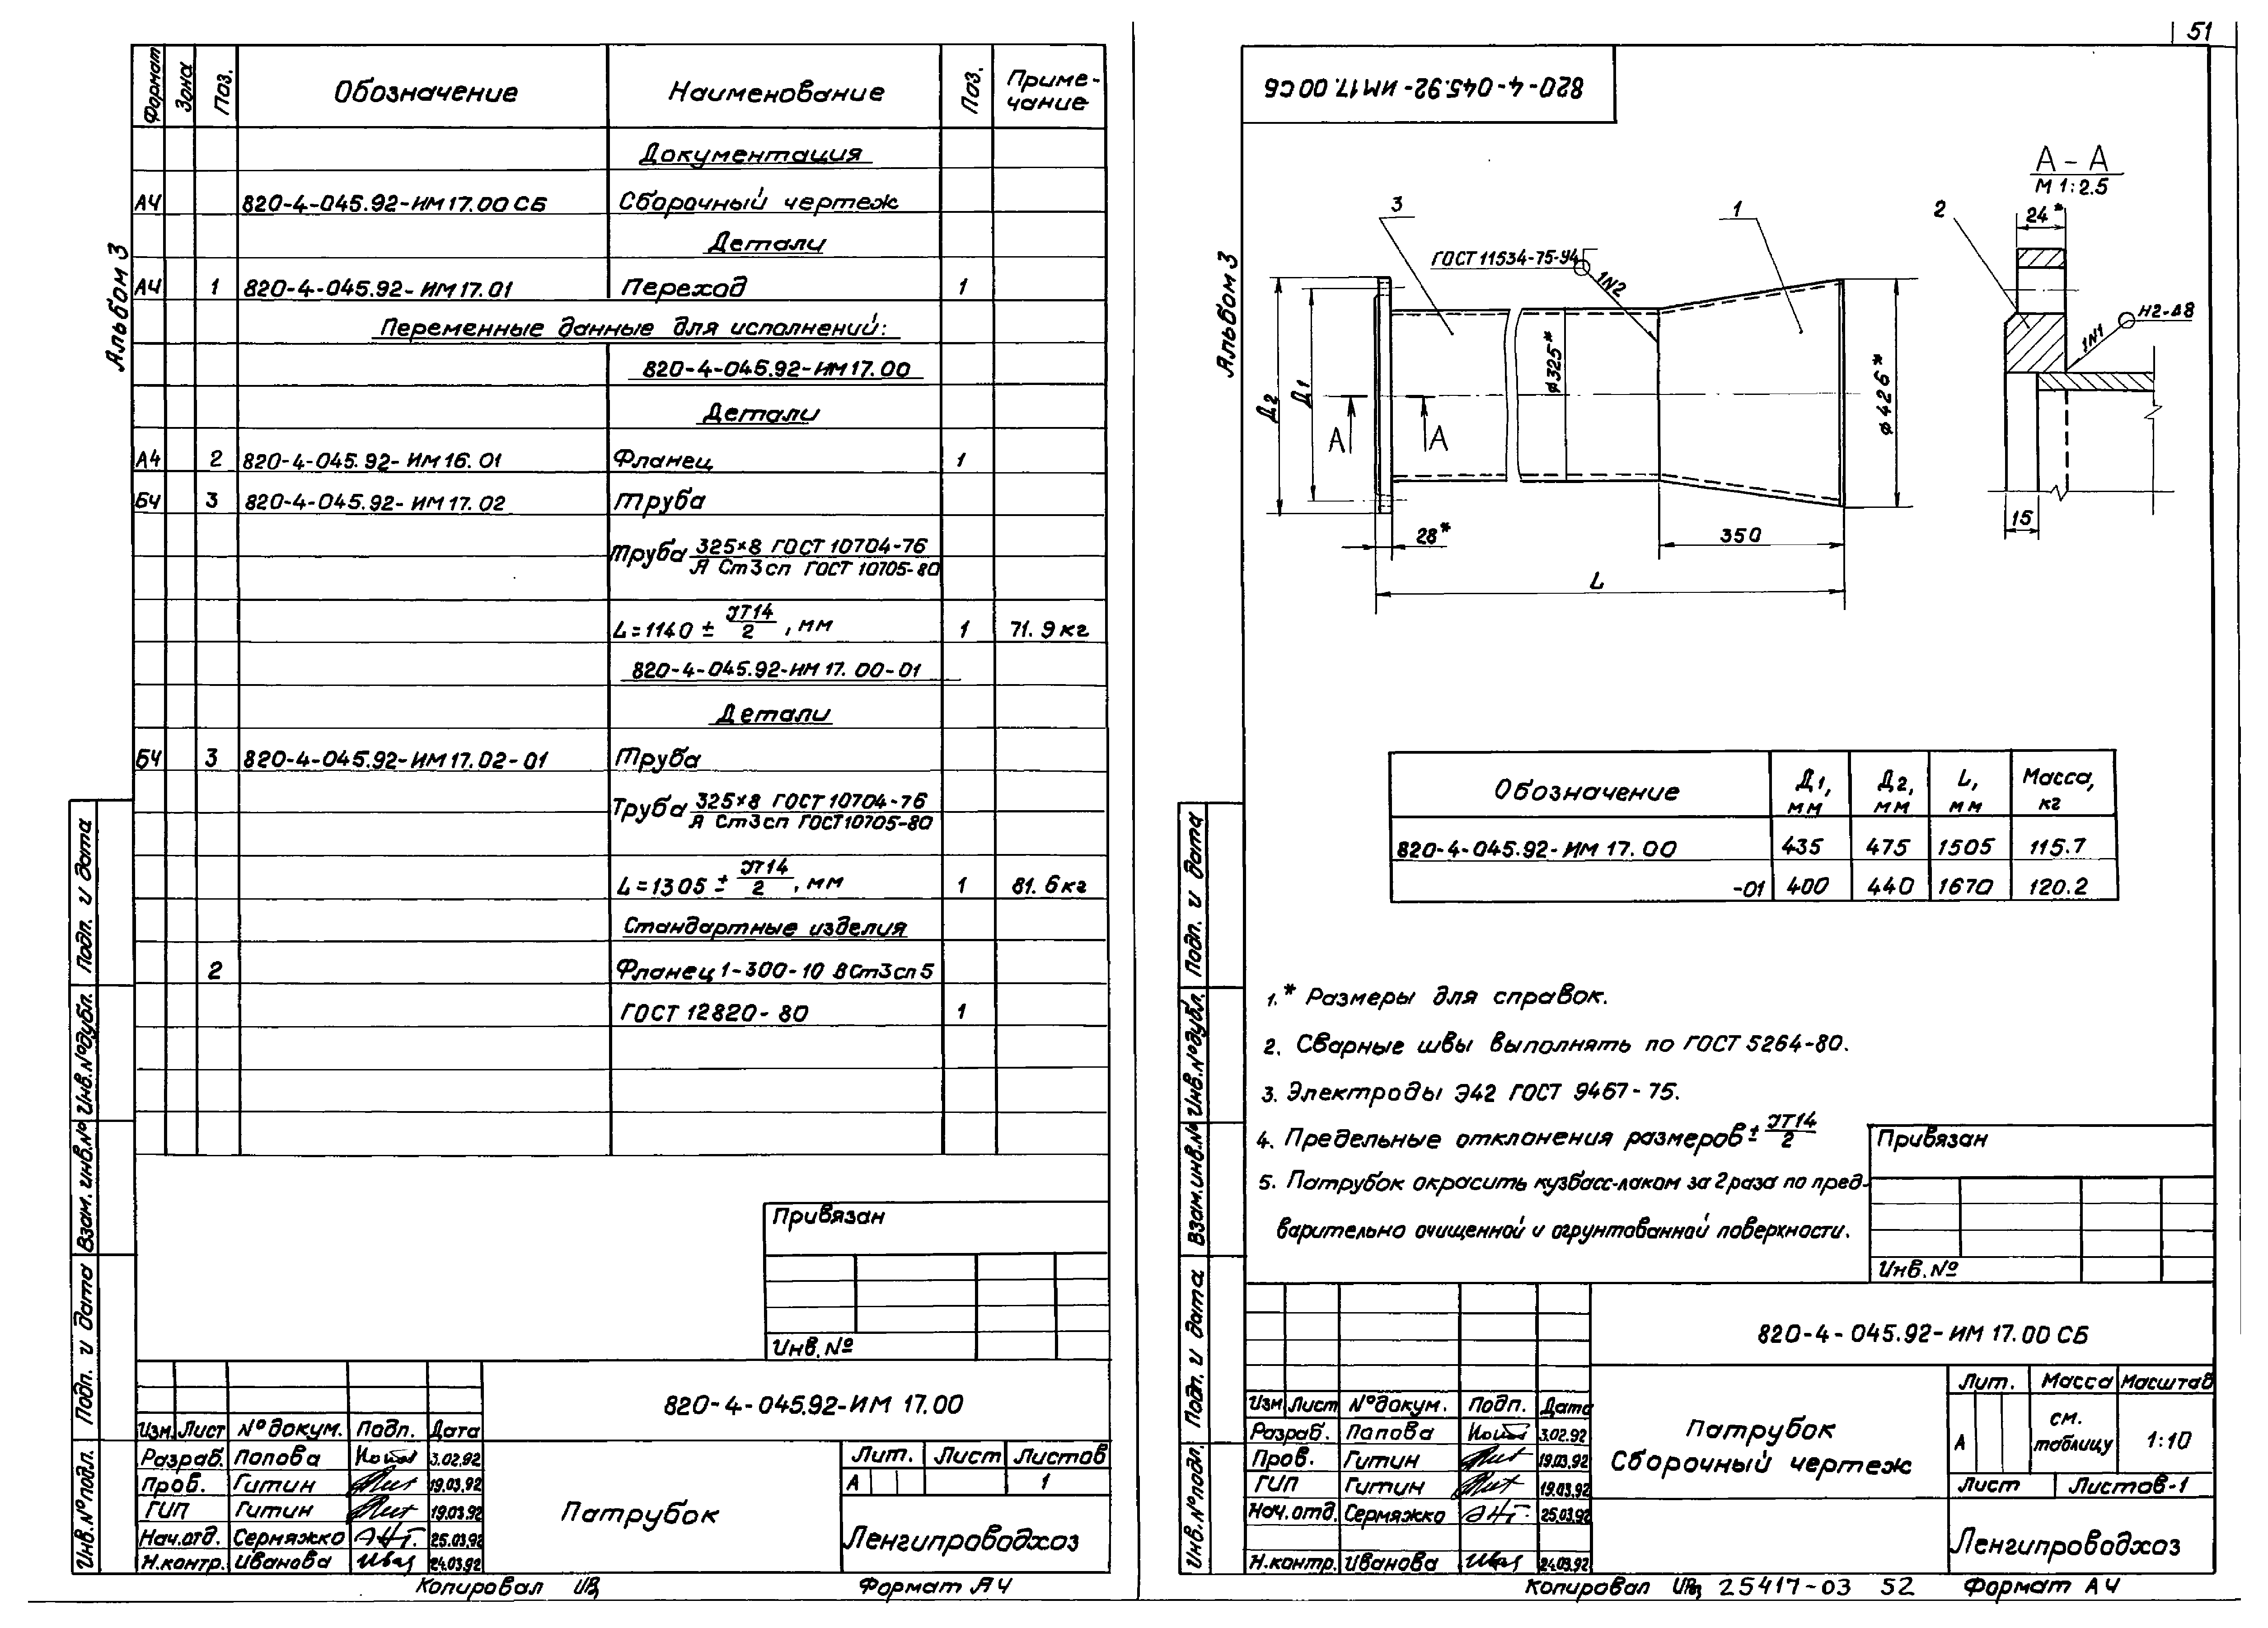 Формат Зона Поз. Обозначение Наименование Поз. Приме-
чание
Документация
А4 820-4-045.92-ИМ17.00 СБ Сборочный чертеж
Детали
А4 1 820-4-045.92-ИМ17.01 Переход 1
Переменные данные для исполнений:
820-4-045.92-ИМ17.00
Детали
А4 2 820-4-045.92-ИМ16.01 Фланец 1
БЧ 3 820-4-045.92-ИМ17.02 Труба
Труба 325×8 ГОСТ 10704-76
А Ст3сп ГОСТ 10705-80
L=1140 ± JT14/2, мм 1 71.9кг
820-4-045.92-ИМ17.00-01
Детали
БЧ 3 820-4-045.92-ИМ17.02-01 Труба
Труба 325×8 ГОСТ 10704-76
А Ст3сп ГОСТ 10705-80
L=1305 ± JT14/2, мм 1 81.6кг
Стандартные изделия
2 Фланец 1-300-10 ВСт3сп5
ГОСТ 12820-80 1
Альбом 3
Подп. и дата
Инв.№дубл.
Взам.инв.№
Подп. и дата
Инв.№подл.
Привязан
Инв.№
820-4-045.92-ИМ 17.00
Изм. Лист №докум. Подп. Дата
Разраб. Попова 3.02.92
Пров. Гитин 19.03.92
ГИП Гитин 19.03.92
Нач.отд. Сермяжко 25.03.92
Н.контр. Иванова 24.03.92
Патрубок
Лит. Лист Листов
А 1
Ленгипроводхоз
Копировал Формат А4
51
820-4-045.92-ИМ17.00 СБ
Альбом 3
А-А
М 1:2.5
3
1
2
24*
ГОСТ 11534-75-У4
1№2
Н2-Δ8
1№1
Д2
Д1
А
А
φ325*
φ426*
28*
350
L
15
Обозначение Д1, мм Д2, мм L, мм Масса, кг
820-4-045.92-ИМ 17.00 435 475 1505 115.7
-01 400 440 1670 120.2
1.* Размеры для справок.
2. Сварные швы выполнять по ГОСТ 5264-80.
3. Электроды Э42 ГОСТ 9467-75.
4. Предельные отклонения размеров ± JT14/2
5. Патрубок окрасить кузбасс-лаком за 2 раза по пред-
варительно очищенной и огрунтованной поверхности.
Подп. и дата
Инв.№дубл.
Взам.инв.№
Подп. и дата
Инв.№подл.
Привязан
Инв.№
820-4-045.92-ИМ 17.00 СБ
Изм Лист №докум. Подп. Дата
Разраб. Попова 3.02.92
Пров. Гитин 19.03.92
ГИП Гитин 19.03.92
Нач.отд. Сермяжко 25.03.92
Н.контр. Иванова 24.03.92
Патрубок
Сборочный чертеж
Лит. Масса Масштаб
А см. таблицу 1:10
Лист Листов-1
Ленгипроводхоз
Копировал 25417-03 52 Формат А4